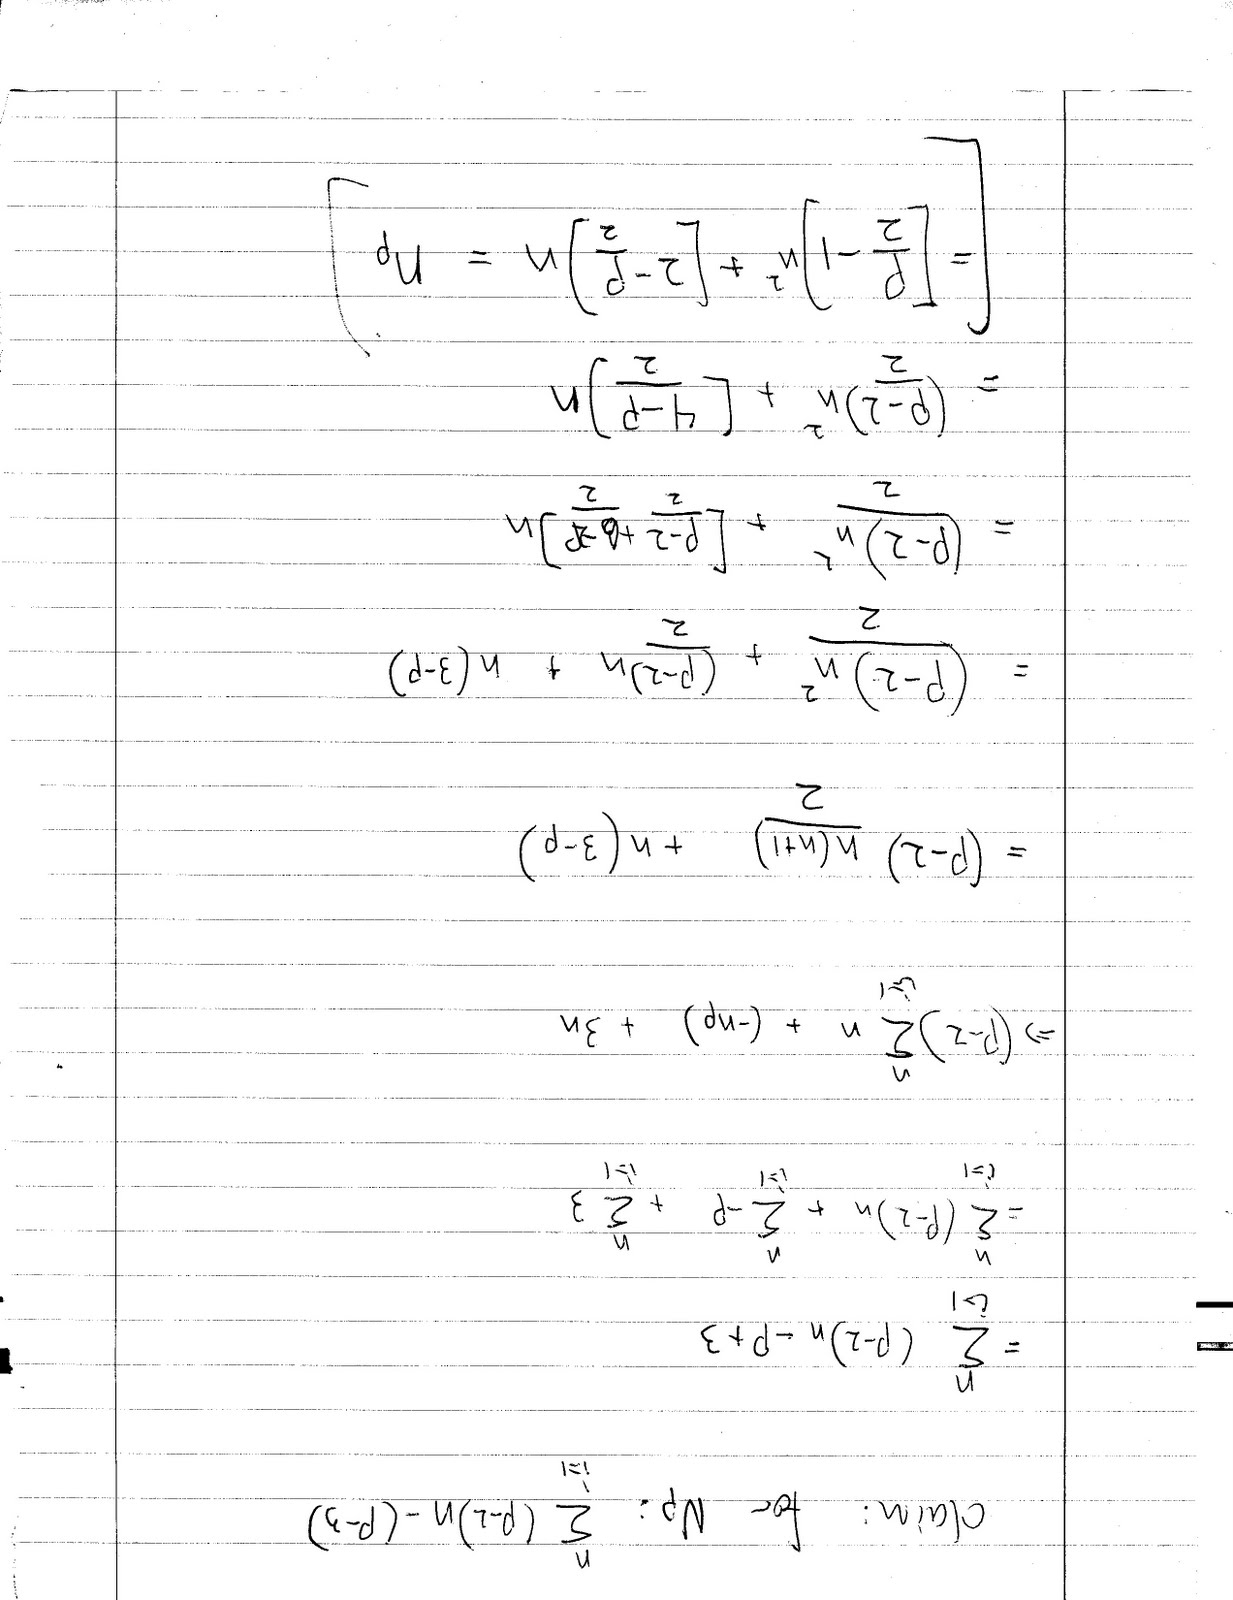 Claim: for Np: \sum_{i=1}^{n} (P-2)n - (P-3)
= \sum_{i=1}^{n} (P-2)n - P+3
= \sum_{i=1}^{n} (P-2)n + \sum_{i=1}^{n} -P + \sum_{i=1}^{n} 3
⇒ (P-2) \sum_{i=1}^{n} n + (-np) + 3n
= (P-2) \frac{n(n+1)}{2} + n(3-p)
= \frac{(P-2)n^2}{2} + \frac{(P-2)n}{2} + n(3-p)
= \frac{(P-2)n^2}{2} + [\frac{P-2}{2} + \frac{6-2P}{2}]n
= (\frac{P-2}{2})n^2 + [\frac{4-P}{2}]n
[= [\frac{P}{2} - 1]n^2 + [2 - \frac{P}{2}]n = n_p]